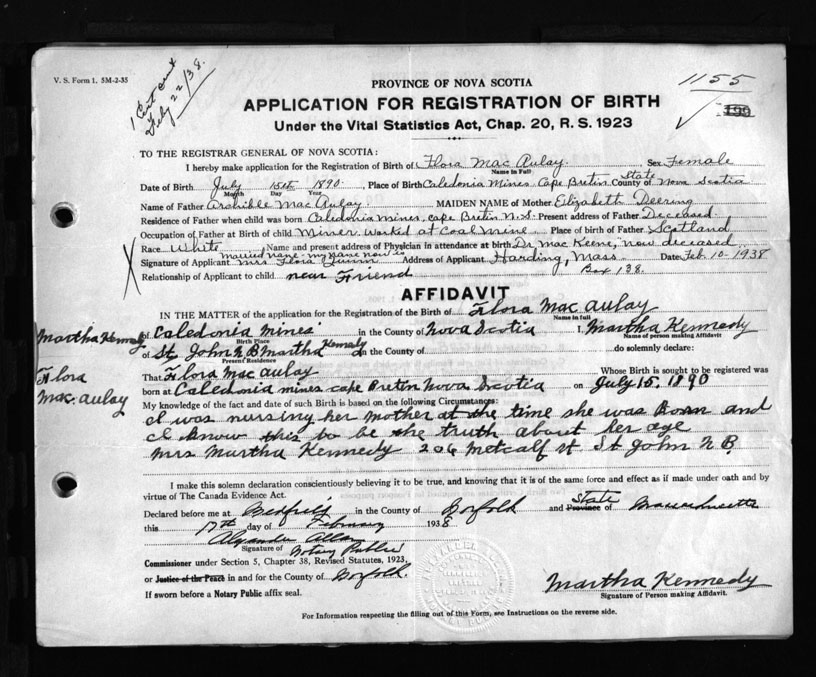 V. S. Form 1. 5M-2-35
1 Cert out
July 22/38.
PROVINCE OF NOVA SCOTIA
1155
APPLICATION FOR REGISTRATION OF BIRTH
Under the Vital Statistics Act, Chap. 20, R. S. 1923
TO THE REGISTRAR GENERAL OF NOVA SCOTIA:
I hereby make application for the Registration of Birth of Flora Mac Aulay. Sex Female
Name in Full
Date of Birth July 15th 1890 Place of Birth Caledonia Mines Cape Bretin County of State Nova Scotia
Month Day Year
Name of Father Archible Mac Aulay MAIDEN NAME of Mother Elizabeth Deering
Residence of Father when child was born Caledonia Mines, Cape Bretin N.S. Present address of Father Deceased
Occupation of Father at Birth of child Minner Worked at Coal Mine Place of birth of Father Scotland
Race White Name and present address of Physician in attendance at birth Dr Mac Keene, now deceased
married name - my name now is
Signature of Applicant Mrs Flora Quinn Address of Applicant Harding, Mass Date Feb. 10 - 1938
Relationship of Applicant to child near Friend Box 138.
AFFIDAVIT
IN THE MATTER of the application for the Registration of the Birth of Flora Mac Aulay
Name in full
Martha Kennedy
of Caledonia Mines in the County of Nova Scotia I, Martha Kennedy
Birth Place Name of person making Affidavit
of St John N B Martha Kennedy in the County of do solemnly declare:
Present Residence
Flora Mac. Aulay
That Flora Mac Aulay Whose Birth is sought to be registered was
born at Caledonia mines cape Bretin Nova Scotia on July 15, 1890
My knowledge of the fact and date of such Birth is based on the following Circumstances:
I was nursing her mother at the time she was Born and
I know this to be the truth about her age
Mrs Martha Kennedy 206 Metcalf St. St John N B.
I make this solemn declaration conscientiously believing it to be true, and knowing that it is of the same force and effect as if made under oath and by
virtue of The Canada Evidence Act.
Declared before me at in the County of Norfolk and State Province of Massachusetts
this 17th day of February 1938
Alexander Allan
Signature of Notary Public
Commissioner under Section 5, Chapter 38, Revised Statutes, 1923,
or Justice of the Peace in and for the County of Norfolk.
If sworn before a Notary Public affix seal.
Martha Kennedy
Signature of Person making Affidavit.
For Information respecting the filling out of this Form, see Instructions on the reverse side.